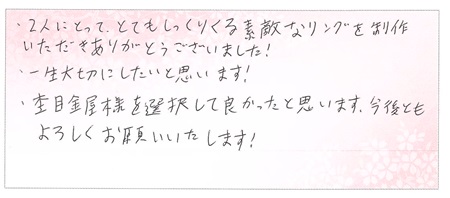 ・2人にとって、とてもしっくりくる素敵なリングを制作
いただきありがとうございました!
・一生大切にしたいと思います!
・杢目金屋様を選択して良かったと思います、今後とも
よろしくお願いいたします!